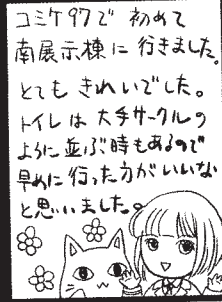 コミケ97で 初めて
南展示棟に 行きました。
とても きれいでした。
トイレは 大手サークルの
ように並ぶ時もあるので
早めに行った方がいいな
と思いました。